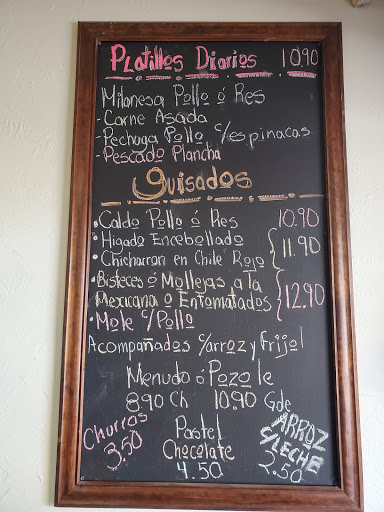 Platillos Diarios 10.90
Milanesa Pollo ó Res
- Carne Asada
- Pechuga Pollo c/espinacas
- Pescado Plancha
Guisados
• Caldo Pollo ó Res 10.90
• Higado Encebollado
• Chicharron en Chile Rojo 11.90
• Bisteces ó Mollejas a la
Mexicana o Entomatados 12.90
• Mole c/Pollo
Acompañados c/arroz y frijol
Menudo ó Pozole
8.90 Ch 10.90 Gde
Churros
3.50
Pastel
Chocolate
4.50
ARROZ
c/LECHE
2.50